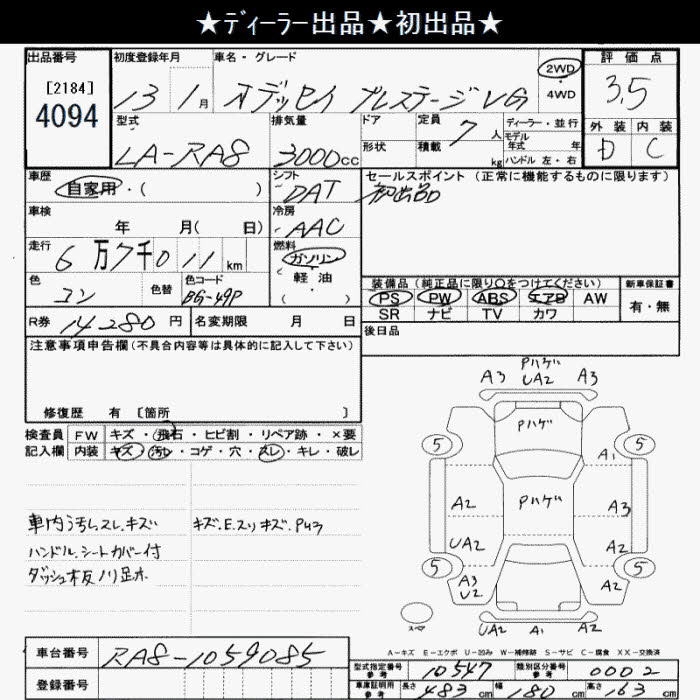 ★ディーラー出品★初出品★
出品番号 初度登録年月 車名・グレード 評価点
[2184]
4094
13 1月 オデッセイ プレステージVG 2WD 4WD 3.5
型式 排気量 ドア 定員 7人 ディーラー・並行 外装 内装
LA-RA8 3000cc 形状 積載 kg モデル年式 年 ハンドル 左・右 D C
車歴 シフト セールスポイント (正常に機能するものに限ります)
自家用・( ) DAT 初出品
車検 冷房
年 月( 日) AAC
走行 燃料
6万7千011km ガソリン・軽油
( )
色 色替 色コード 装備品(純正品に限り○をつけてください) 新車保証書
コン BG-49P PS PW ABS エアB AW 有・無
SR ナビ TV カワ
R券 14280円 名変期限 月 日 後日品
注意事項申告欄(不具合内容等は具体的に記入して下さい)
修復歴 有 [箇所 ]
検査員 FW キズ・飛石・ヒビ割・リペア跡・×要
記入欄 内装 キズ・汚レ・コゲ・穴・スレ・キレ・破レ
車内汚レ.スレ.キズ
ハンドル.シートカバー付
ダッシュ板ノリ足ホ
キズ.E.スリキズ.Pムラ
Pハゲ
A3 UA2 A3
Pハゲ
5 5
A1
A2 Pハゲ A3
UA2 A2
5 5
A3 A2
U2
スペア
UA2 A1 A2
A-キズ E-エクボ U-凹み W-補修跡 S-サビ C-腐食 XX-交換済
車台番号 RA8-1059085
型式指定番号 参考 10547 類別区分番号 参考 0002
登録番号
車庫証明用 参考 長さ 483cm 幅 180cm 高さ 163cm